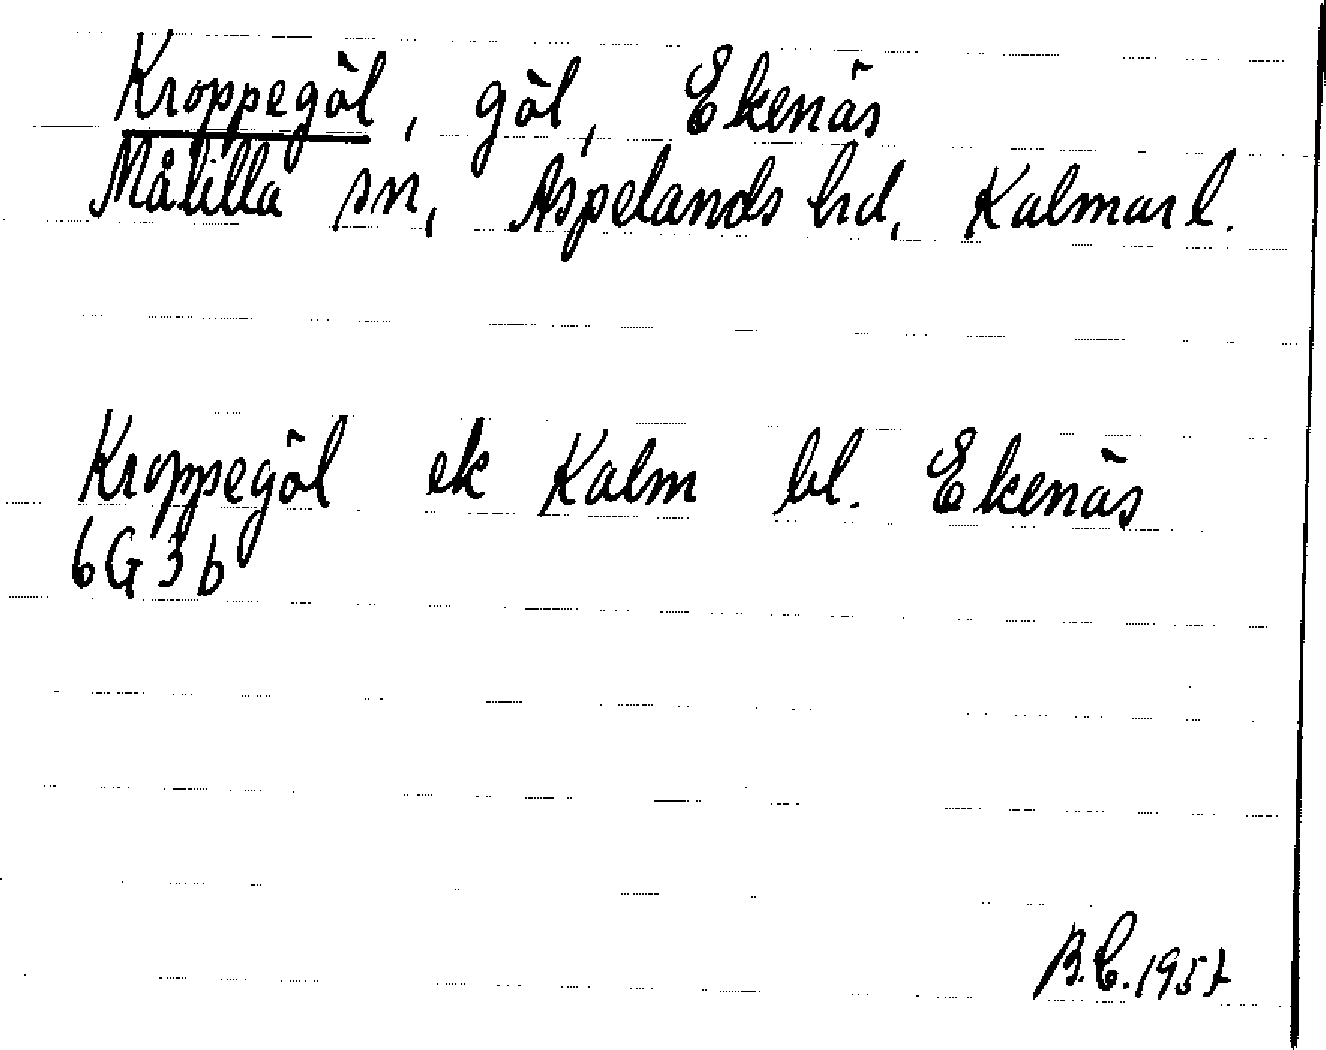 Kroppegöl, göl, Ekenäs
Målilla sn, Aspelands hd, Kalmar l.
Kroppegöl ek Kalm bl. Ekenäs
6G3b
B.C. 1957